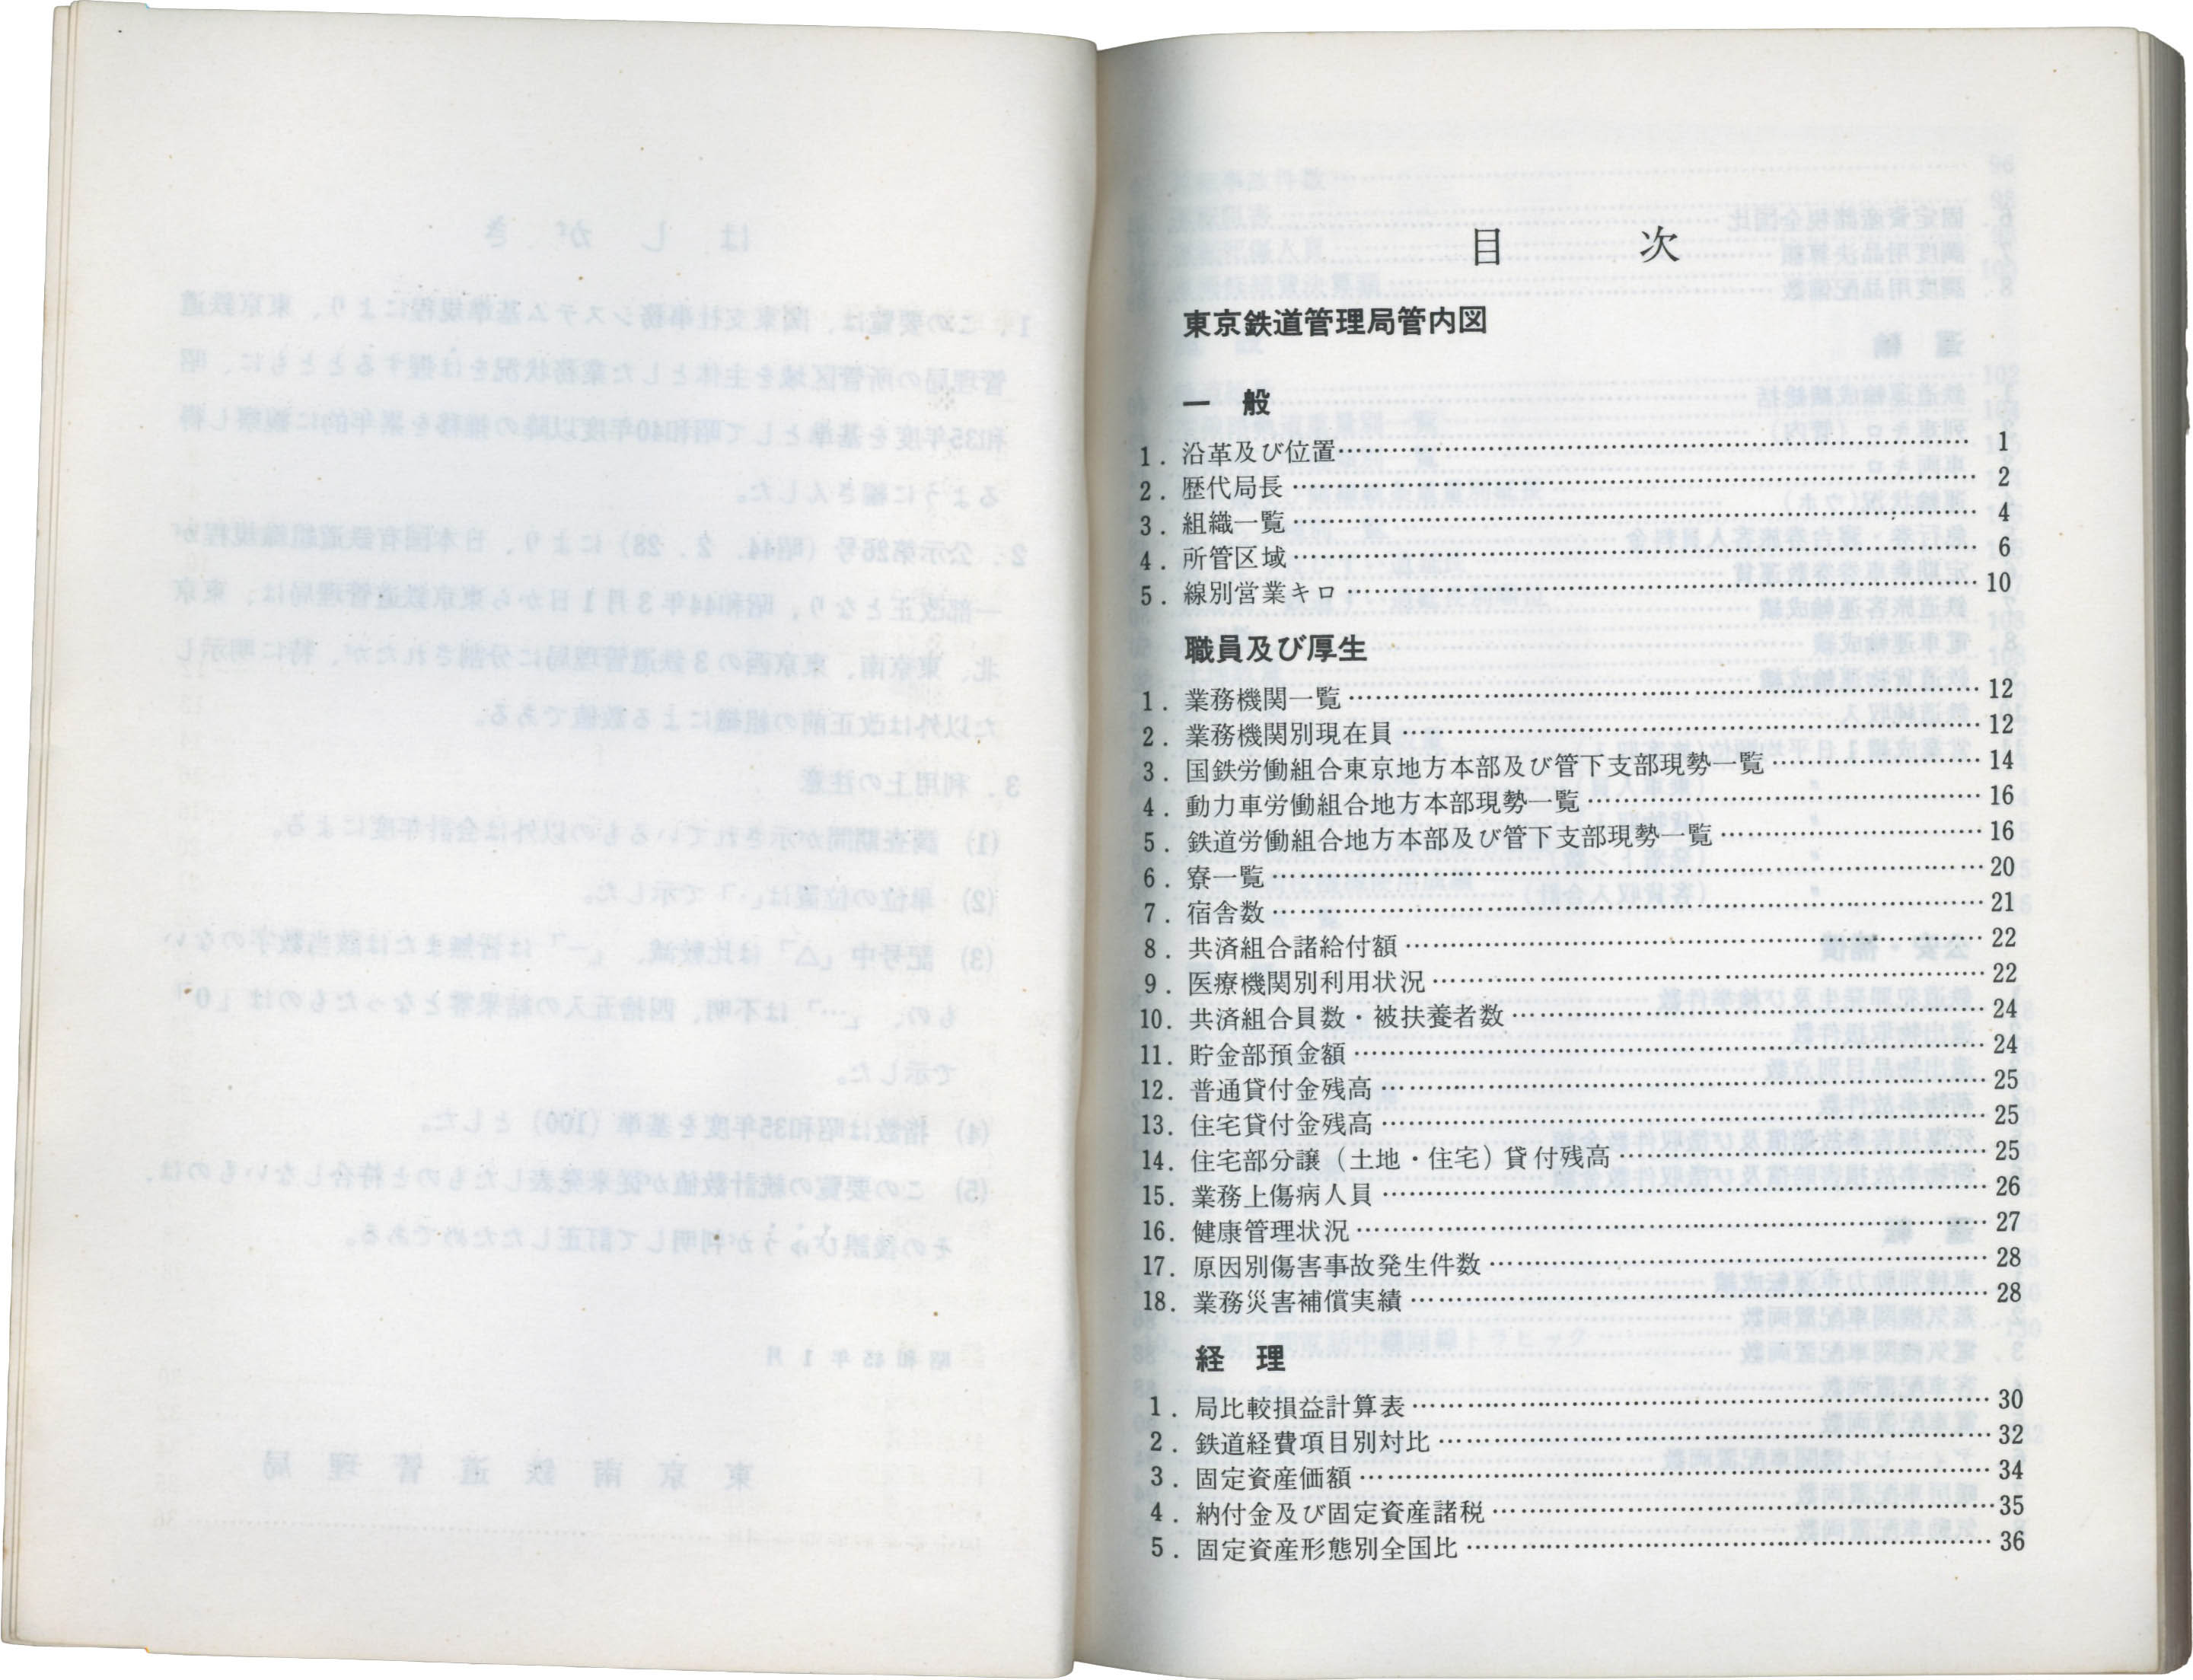 目　次
東京鉄道管理局管内図
一　般
1. 沿革及び位置…… 1
2. 歴代局長…… 2
3. 組織一覧…… 4
4. 所管区域…… 6
5. 線別営業キロ…… 10
職員及び厚生
1. 業務機関一覧…… 12
2. 業務機関別現在員…… 12
3. 国鉄労働組合東京地方本部及び管下支部現勢一覧…… 14
4. 動力車労働組合地方本部現勢一覧…… 16
5. 鉄道労働組合地方本部及び管下支部現勢一覧…… 16
6. 寮一覧…… 20
7. 宿舎数…… 21
8. 共済組合諸給付額…… 22
9. 医療機関別利用状況…… 22
10. 共済組合員数・被扶養者数…… 24
11. 貯金部預金額…… 24
12. 普通貸付金残高…… 25
13. 住宅貸付金残高…… 25
14. 住宅部分譲（土地・住宅）貸付残高…… 25
15. 業務上傷病人員…… 26
16. 健康管理状況…… 27
17. 原因別傷害事故発生件数…… 28
18. 業務災害補償実績…… 28
経　理
1. 局比較損益計算表…… 30
2. 鉄道経費項目別対比…… 32
3. 固定資産価額…… 34
4. 納付金及び固定資産諸税…… 35
5. 固定資産形態別全国比…… 36